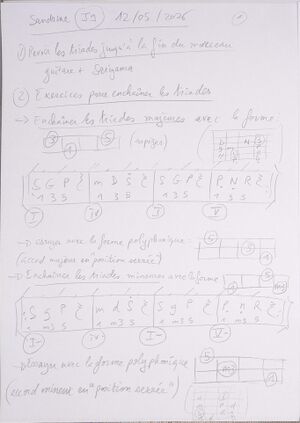 Sandrine J9 12/05/2026
① Revoir les triades jusqu'à la fin du morceau
guitare + Sargama
② Exercices pour enchaîner les triades
→ Enchaîner les triades majeures avec la forme:
③ ① ⑤ (arpèges)
S G P | m D Ṡ | S G P | P N R
1 3 5 | 1 3 5 | 1 3 5 | 1 3 5
I IV I V
→ essayer avec la forme polyphonique:
(accord majeur en "position serrée") ⑤ ③ ①
→ Enchaîner les triades mineures avec la forme
S g P | m d Ṡ | S g P | P n R
1 m3 5 | 1 m3 5 | 1 m3 5 | 1 m3 5
I- IV- I- V-
→ Essayer avec la forme polyphonique
(accord mineur en "position serrée") ⑤ m3 ①